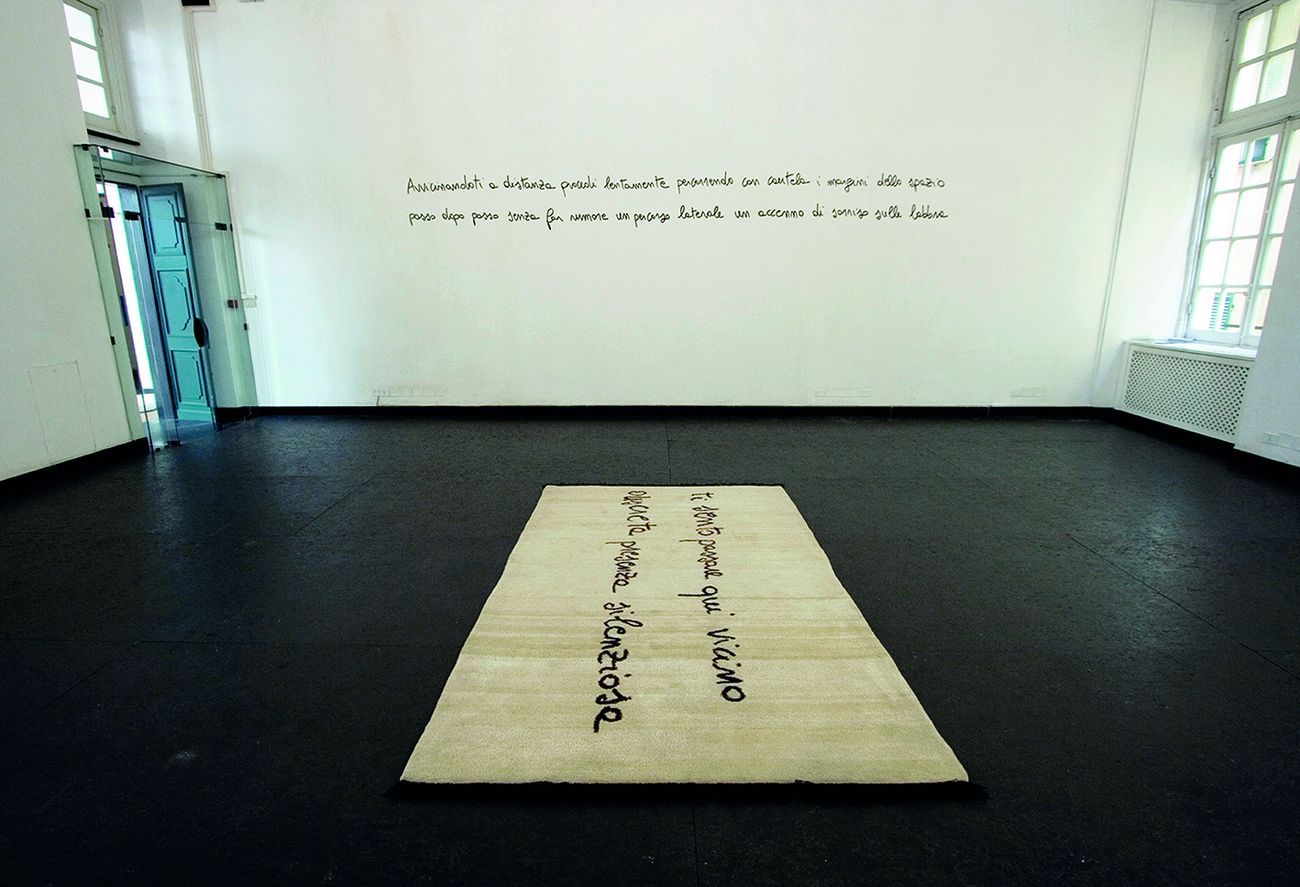 Avvicinandoti a distanza procedi lentamente percorrendo con cautela i margini dello spazio
passo dopo passo senza far rumore un percorso laterale un accenno di sorriso sulle labbra
ti sento passare qui vicino
discreta presenza silenziosa